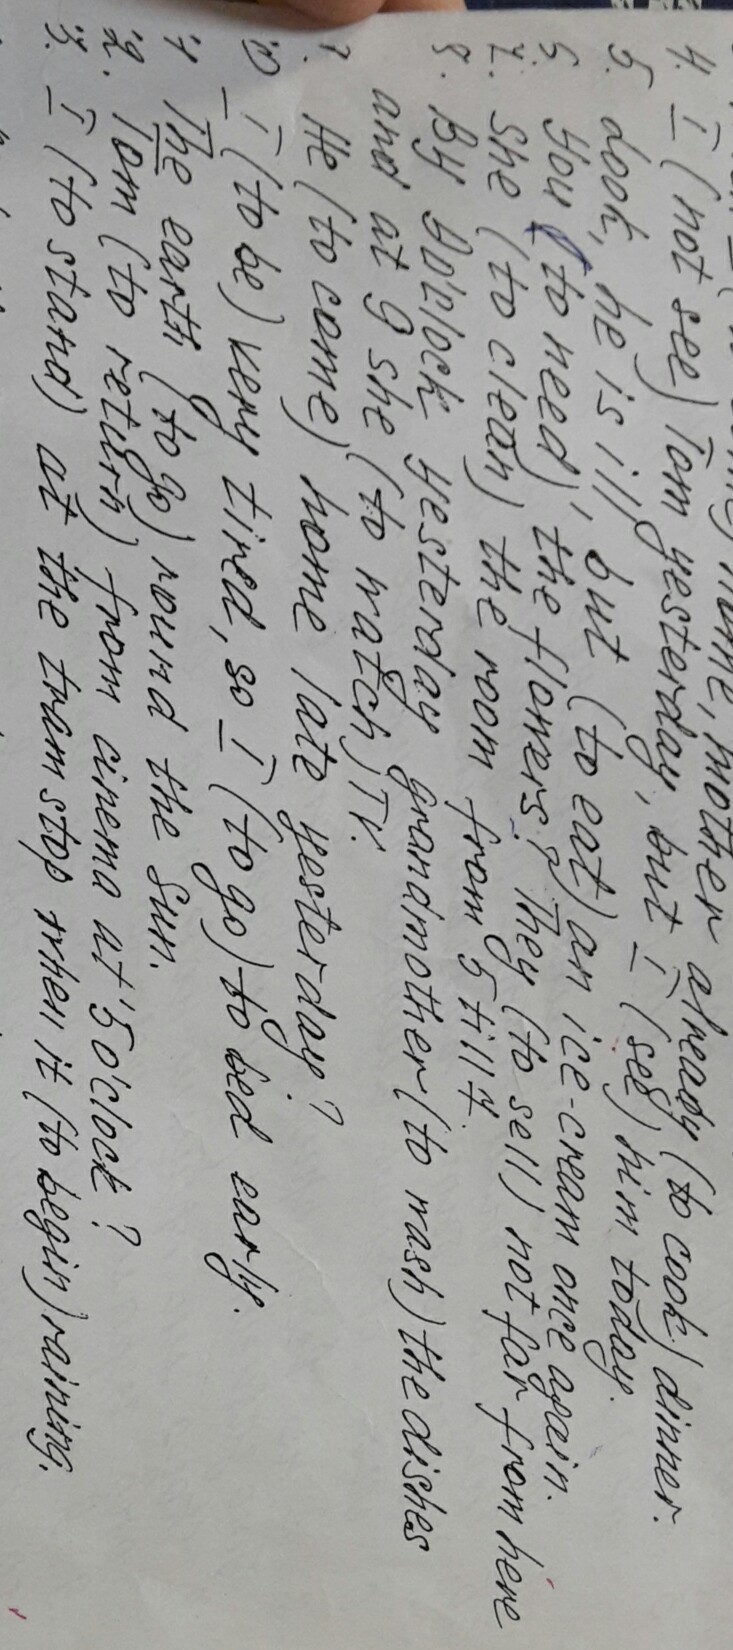 name, mother already (to cook) dinner.
4. I (not see) Tom yesterday, but I (see) him today.
5. Look, he is ill, but (to eat) an ice-cream once again.
6. You (to need) the flowers? They (to sell) not far from here
7. She (to clean) the room from 5 till 7.
8. By 9 o'clock yesterday grandmother (to wash) the dishes
and at 9 she (to watch) TV.
9. He (to come) home late yesterday?
10 I (to be) very tired, so I (to go) to bed early.
The earth (to go) round the sun.
2. Tom (to return) from cinema at 5 o'clock?
3. I (to stand) at the tram stop when it (to begin) raining.